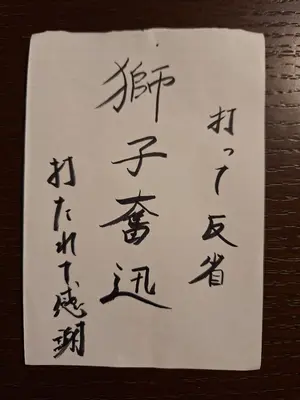 打って反省
獅子奮迅
打たれて感謝